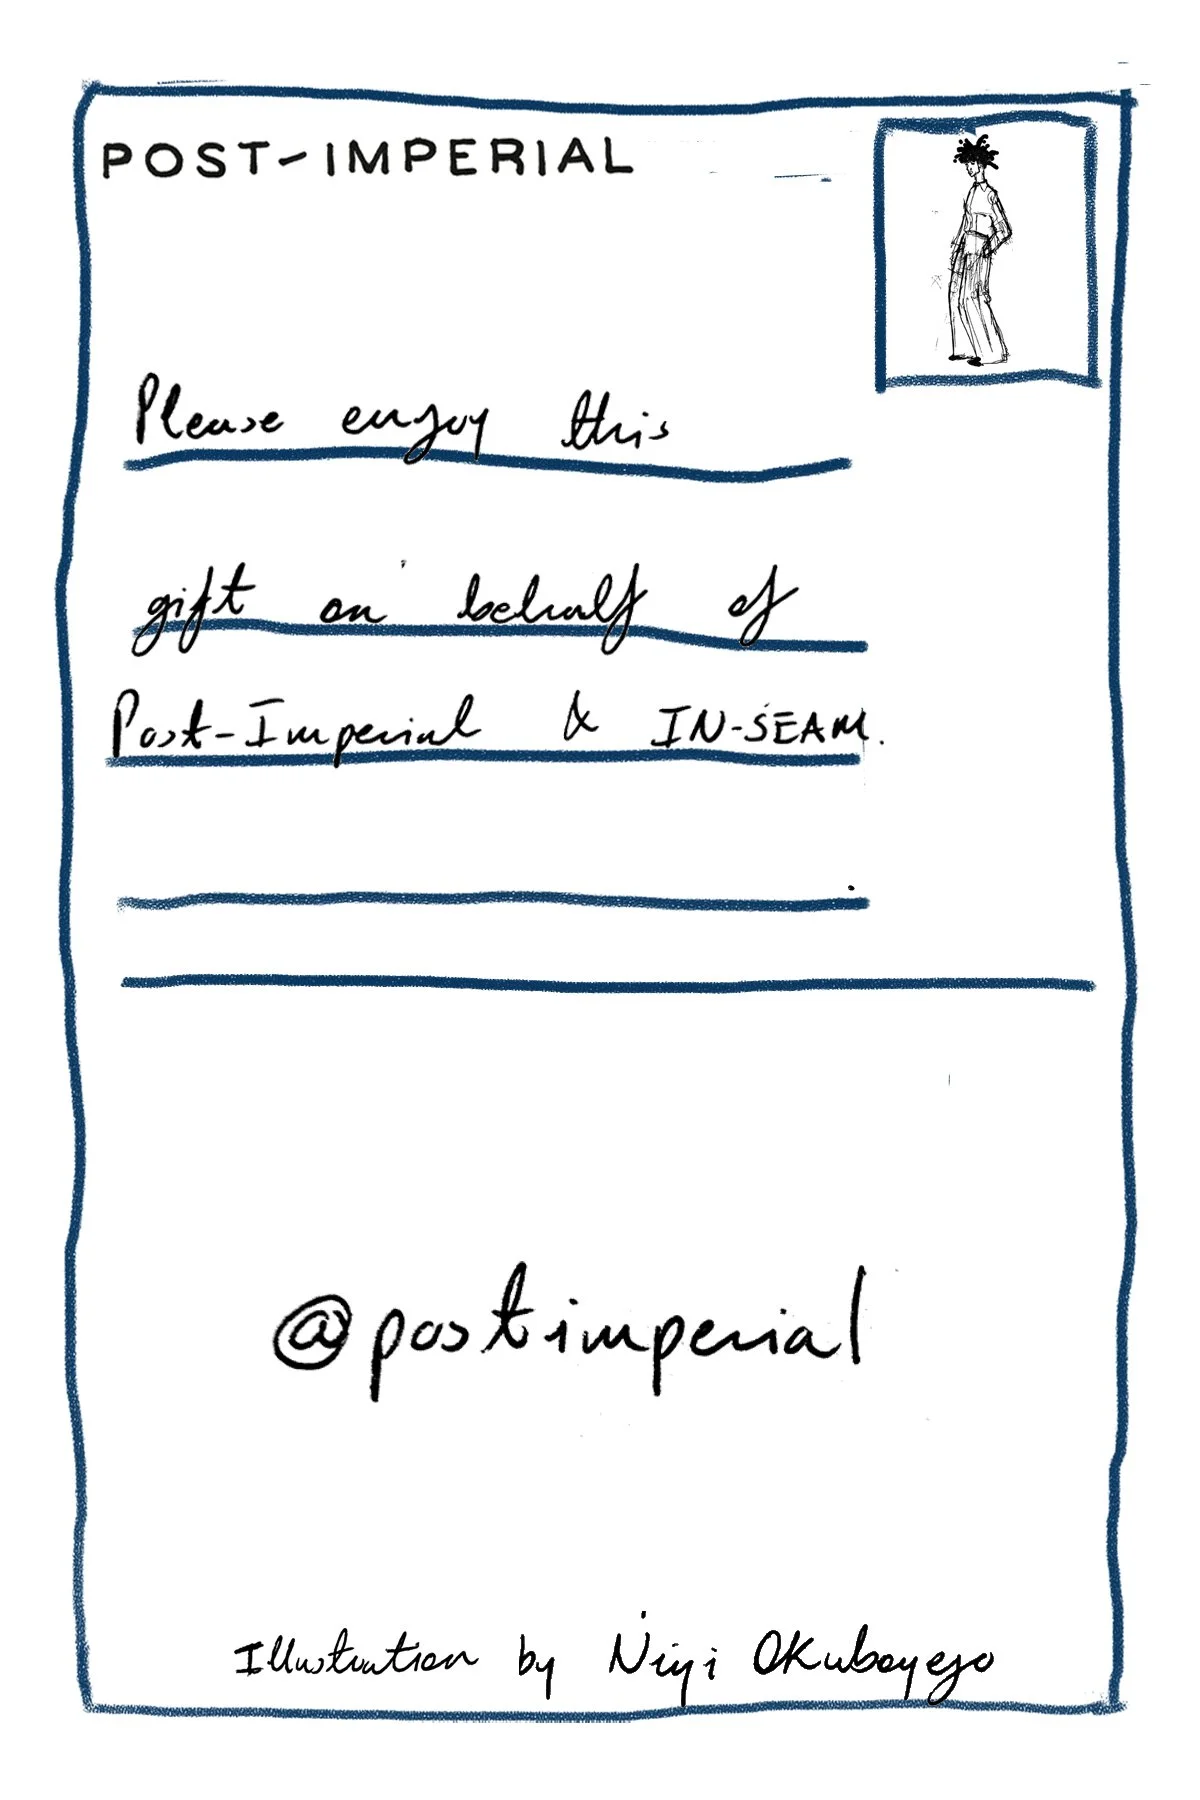 POST-IMPERIAL
Please enjoy this
gift on behalf of
Post-Imperial & IN-SEAM.
@postimperial
Illustration by Niyi Okuboyejo